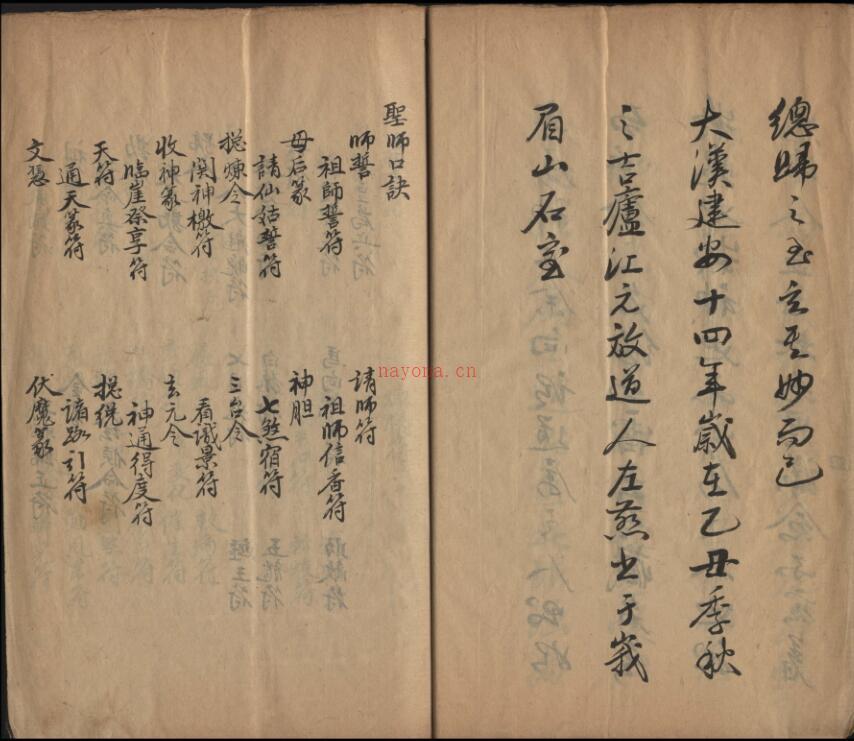 總歸之至玄至妙而已
大漢建安十四年歲在乙丑季秋
之吉廬江元放道人左慈書于峩
眉山石室
聖師口訣
師誓 請師符
祖師誓符 祖師信香符
母后篆 神胆
請仙姑誓符 七煞宿符
捴煉令 三台令
関神檄符 看景符
收神篆 玄元令
臨崖祭享符 神通得度符
天符 捴綂
通天篆符 諸路引符
文 伏魔篆
nayona.cn